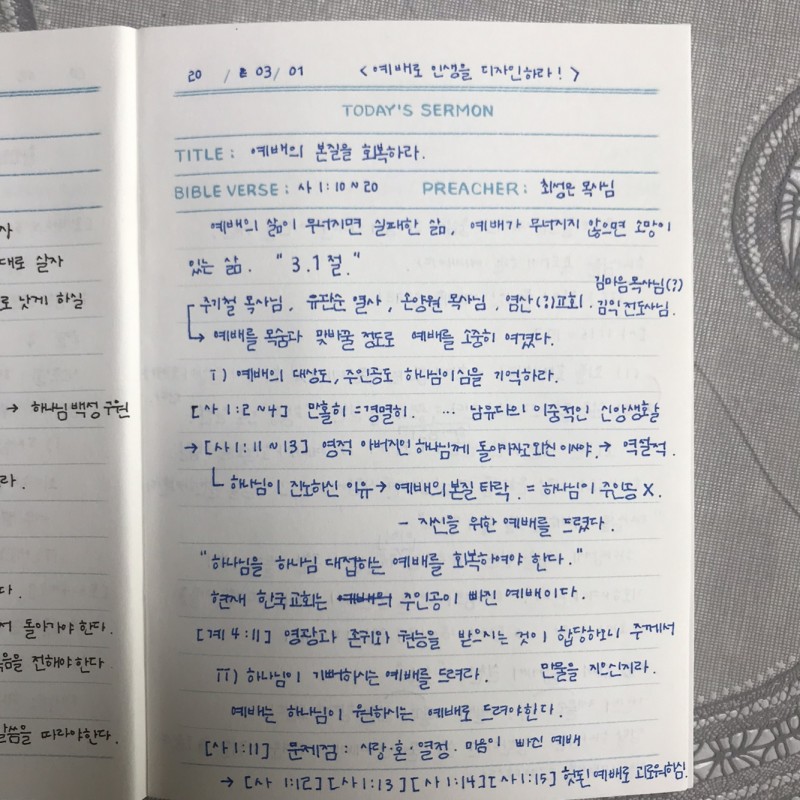 자
대로 살자
로 낫게 하실
→ 하나님 백성 구원
라.
다.
서 돌아가야 한다.
음을 전해야한다
말씀을 따라야한다.
20 / 03/ 01 <예배로 인생을 디자인하라!>
TODAY'S SERMON
TITLE: 예배의 본질을 회복하라.
BIBLE VERSE: 사 1:10~20 PREACHER: 최성은 목사님
예배의 삶이 무너지면 실패한 삶, 예배가 무너지지 않으면 소망이
있는 삶. "3.1절."
김마음목사님(?)
주기철 목사님, 유관순 열사, 손양원 목사님, 염산(?)교회. 김익 전도사님.
↳ 예배를 목숨과 맞바꿀 정도로 예배를 소중히 여겼다.
i) 예배의 대상도, 주인공도 하나님이심을 기억하라.
[사 1:2~4] 만홀히=경멸히. … 남유다의 이중적인 신앙생활
→[사 1:11~13] 영적 아버지인 하나님께 돌아가자고 외친 이사야. → 역설적.
└ 하나님이 진노하신 이유 → 예배의 본질 타락. = 하나님이 주인공 X.
- 자신을 위한 예배를 드렸다.
"하나님을 하나님 대접하는 예배를 회복하여야 한다."
현재 한국교회는 예배의 주인공이 빠진 예배이다.
[계 4:11] 영광과 존귀와 권능을 받으시는 것이 합당하오니 주께서
만물을 지으신지라.
ii) 하나님이 기뻐하시는 예배를 드려라.
예배는 하나님이 원하시는 예배로 드려야한다.
[사 1:11] 문제점 : 사랑·혼·열정·마음이 빠진 예배
→ [사 1:12][사 1:13][사 1:14][사 1:15] 헛된 예배로 괴로워하심.